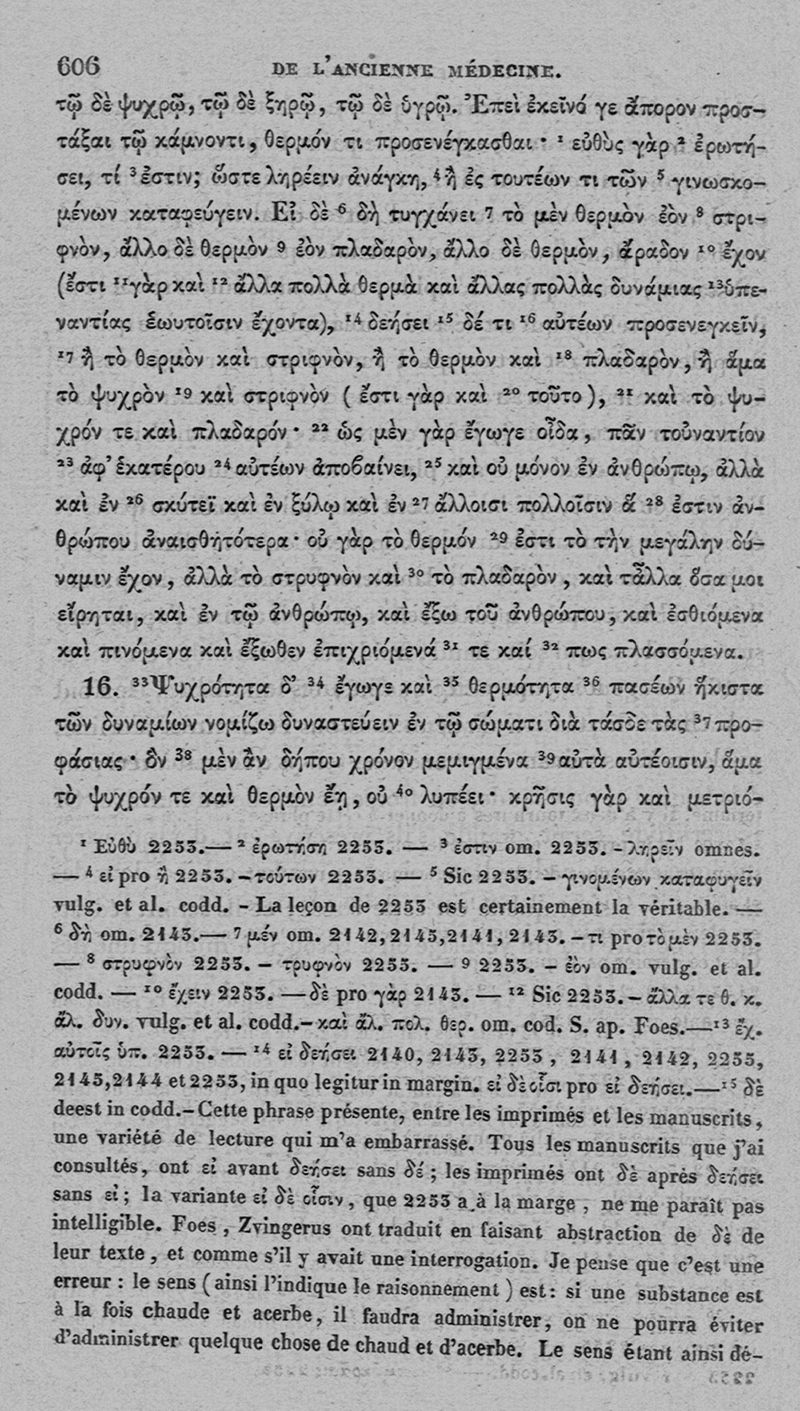 606 DE L'ANCIENNE MÉDECINE.
τῷ δὲ ψυχρῷ, τῷ δὲ ξηρῷ, τῷ δὲ ὑγρῷ. Ἐπεὶ ἐκεῖνό γε ἄπορον προσ-
τάξαι τῷ κάμνοντι, θερμόν τι προσενέγκασθαι · ¹ εὐθὺς γὰρ ² ἐρωτή-
σει, τί ³ ἐστιν; ὥστε ληρέειν ἀνάγκη, ⁴ ἢ ἐς τουτέων τι τῶν ⁵ γινωσκο-
μένων καταφεύγειν. Εἰ δὲ ⁶ δὴ τυγχάνει ⁷ τὸ μὲν θερμὸν ἐὸν ⁸ στρι-
φνὸν, ἄλλο δὲ θερμὸν ⁹ ἐὸν πλαδαρὸν, ἄλλο δὲ θερμὸν, ἄραδον ¹⁰ ἔχον
(ἔστι ¹¹ γὰρ καὶ ¹² ἄλλα πολλὰ θερμὰ καὶ ἄλλας πολλὰς δυνάμιας ¹³ ὑπε-
ναντίας ἑωυτοῖσιν ἔχοντα), ¹⁴ δεήσει ¹⁵ δέ τι ¹⁶ αὐτέων προσενεγκεῖν,
¹⁷ ἢ τὸ θερμὸν καὶ στριφνὸν, ἢ τὸ θερμὸν καὶ ¹⁸ πλαδαρὸν, ἢ ἅμα
τὸ ψυχρὸν ¹⁹ καὶ στριφνὸν ( ἔστι γὰρ καὶ ²⁰ τοῦτο ), ²¹ καὶ τὸ ψυ-
χρόν τε καὶ πλαδαρόν · ²² ὡς μὲν γὰρ ἔγωγε οἶδα, πᾶν τοὐναντίον
²³ ἀφ' ἑκατέρου ²⁴ αὐτέων ἀποβαίνει, ²⁵ καὶ οὐ μόνον ἐν ἀνθρώπῳ, ἀλλὰ
καὶ ἐν ²⁶ σκύτεϊ καὶ ἐν ξύλῳ καὶ ἐν ²⁷ ἄλλοισι πολλοῖσιν ἅ ²⁸ ἐστιν ἀν-
θρώπου ἀναισθητότερα · οὐ γὰρ τὸ θερμόν ²⁹ ἐστι τὸ τὴν μεγάλην δύ-
ναμιν ἔχον, ἀλλὰ τὸ στρυφνὸν καὶ ³⁰ τὸ πλαδαρὸν, καὶ τἆλλα ὅσα μοι
εἴρηται, καὶ ἐν τῷ ἀνθρώπῳ, καὶ ἔξω τοῦ ἀνθρώπου, καὶ ἐσθιόμενα
καὶ πινόμενα καὶ ἔξωθεν ἐπιχριόμενά ³¹ τε καί ³² πως πλασσόμενα.
16. ³³ Ψυχρότητα δ' ³⁴ ἔγωγε καὶ ³⁵ θερμότητα ³⁶ πασέων ἥκιστα
τῶν δυναμίων νομίζω δυναστεύειν ἐν τῷ σώματι διὰ τάσδε τὰς ³⁷ προ-
φάσιας · ὃν ³⁸ μὲν ἂν δήπου χρόνον μεμιγμένα ³⁹ αὐτὰ αὐτέοισιν, ἅμα
τὸ ψυχρόν τε καὶ θερμὸν ἔῃ, οὐ ⁴⁰ λυπέει · κρῆσις γὰρ καὶ μετριό-
¹ Εὐθὺ 2253. — ² ἐρωτήσῃ 2253. — ³ ἐστιν om. 2253. - ληρεῖν omnes.
— ⁴ εἰ pro ἢ 2253. - τούτων 2253. — ⁵ Sic 2253. - γινομένων καταφυγεῖν
vulg. et al. codd. - La leçon de 2253 est certainement la véritable. —
⁶ δὴ om. 2143. — ⁷ μέν om. 2142, 2145, 2141, 2143. - τι pro τὸ μὲν 2253.
— ⁸ στρυφνὸν 2253. - τρυφνὸν 2255. — ⁹ 2253. - ἐὸν om. vulg. et al.
codd. — ¹⁰ ἔχειν 2253. — δὲ pro γὰρ 2143. — ¹² Sic 2253. - ἄλλα τε θ. κ.
ἄλ. δυν. vulg. et al. codd. - καὶ ἄλ. πολ. θερ. om. cod. S. ap. Foes. — ¹³ ἔχ.
αὐτοῖς ὑπ. 2253. — ¹⁴ εἰ δεήσει 2140, 2143, 2253, 2141, 2142, 2255,
2145, 2144 et 2253, in quo legitur in margin. εἰ δὲ οἶσι pro εἰ δεήσει. — ¹⁵ δὲ
deest in codd. - Cette phrase présente, entre les imprimés et les manuscrits,
une variété de lecture qui m'a embarrassé. Tous les manuscrits que j'ai
consultés, ont εἰ avant δεήσει sans δέ ; les imprimés ont δὲ après δεήσει
sans εἰ ; la variante εἰ δὲ οἶσιν, que 2253 a à la marge, ne me paraît pas
intelligible. Foes, Zvingerus ont traduit en faisant abstraction de δὲ de
leur texte, et comme s'il y avait une interrogation. Je pense que c'est une
erreur : le sens ( ainsi l'indique le raisonnement ) est : si une substance est
à la fois chaude et acerbe, il faudra administrer, on ne pourra éviter
d'administrer quelque chose de chaud et d'acerbe. Le sens étant ainsi dé-